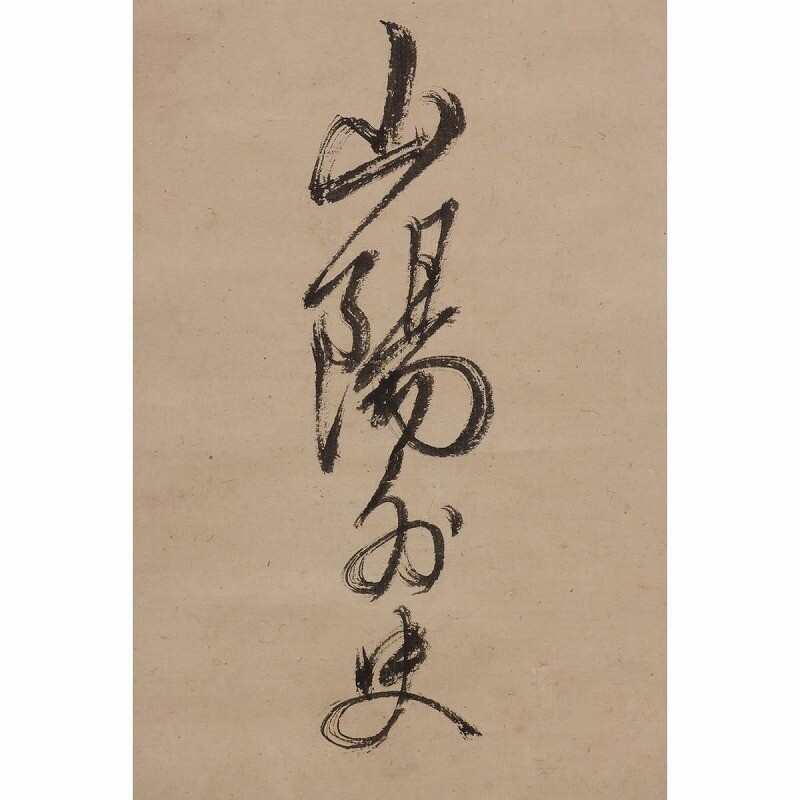 山陽外史